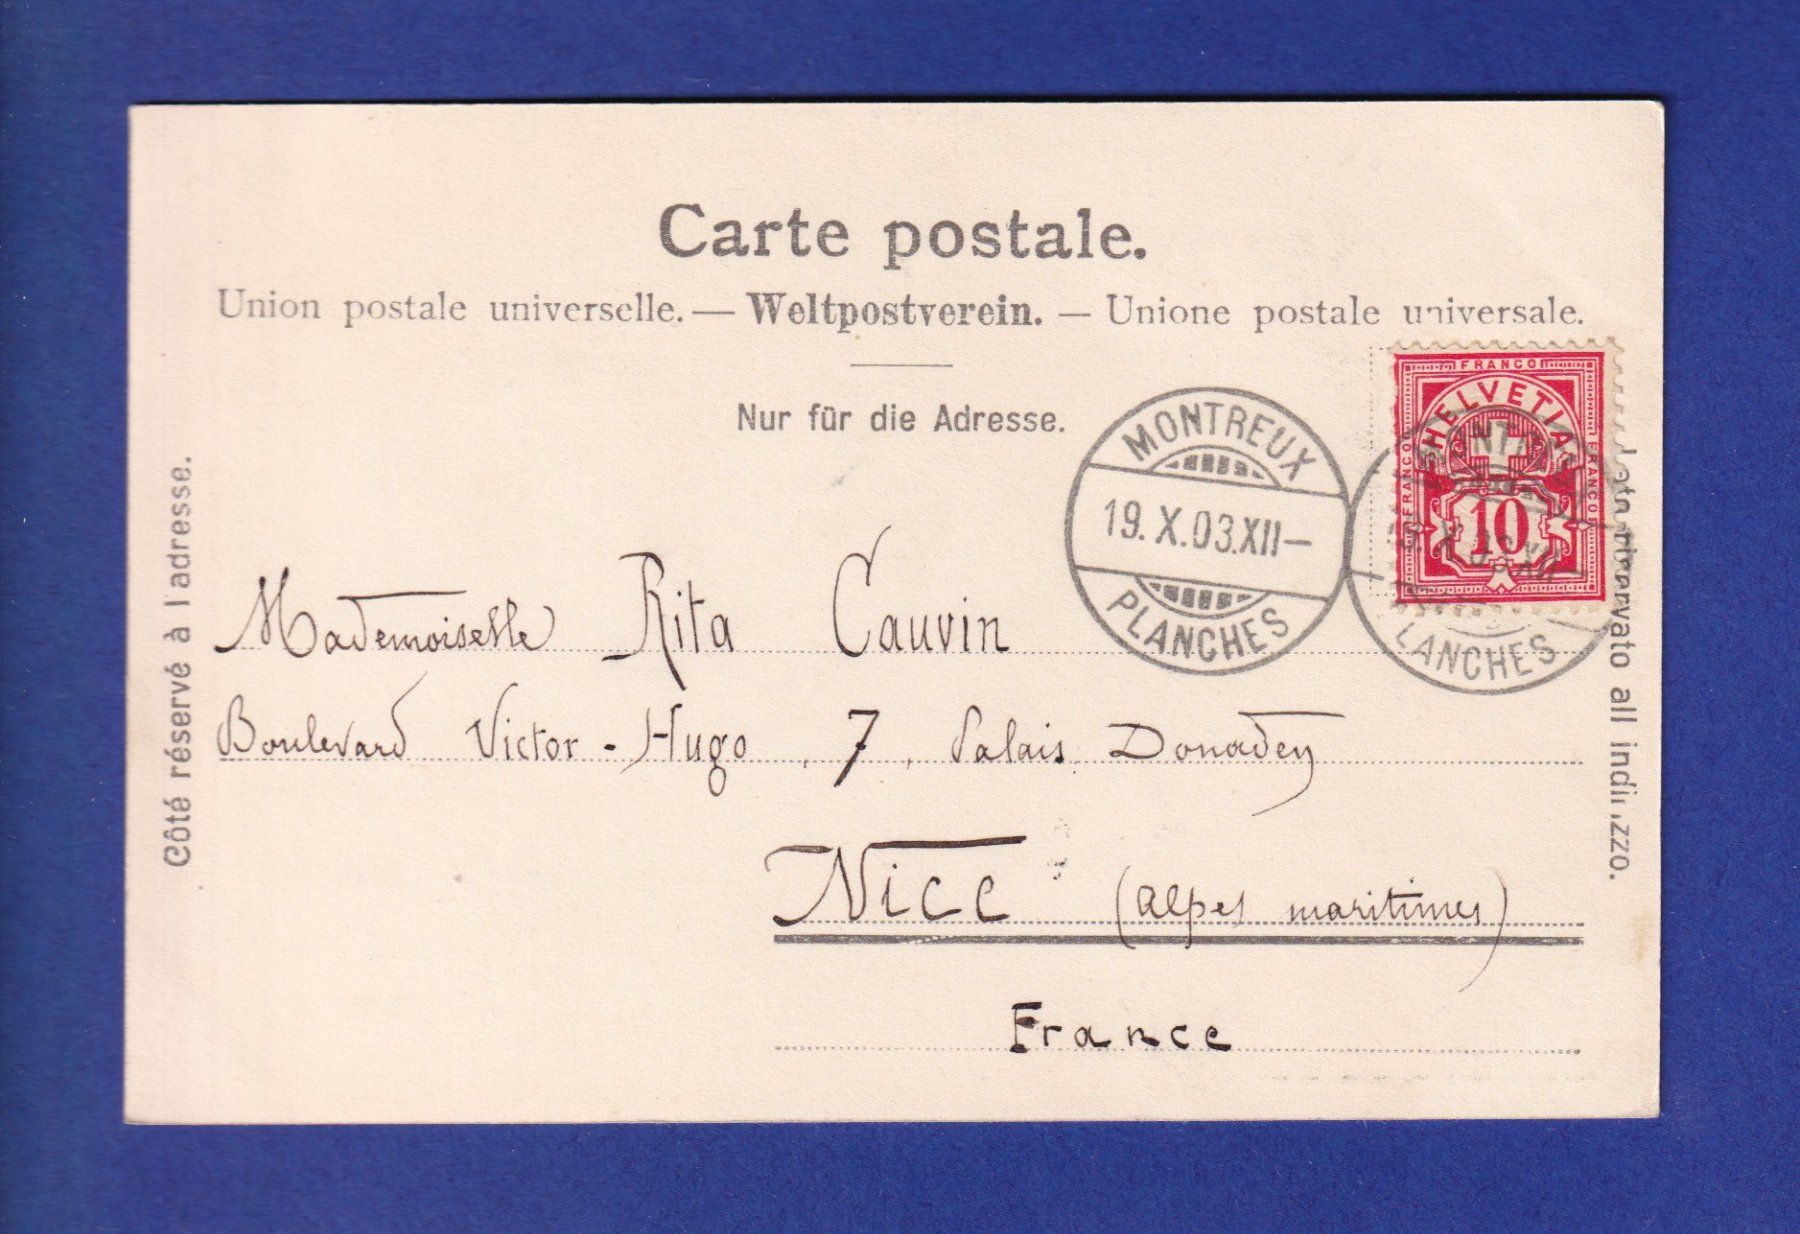 Carte postale.
Union postale universelle. — Weltpostverein. — Unione postale universale.
Nur für die Adresse.
Côté réservé à l'adresse.
Lato riservato all indirizzo.
FRANCO
FRANCO
FRANCO
HELVETIA
10
MONTREUX
19. X. 03.XII—
PLANCHES
LANCHES
Mademoiselle Rita Cauvin
Boulevard Victor-Hugo, 7, Palais Donadey
Nice (Alpes maritimes)
France